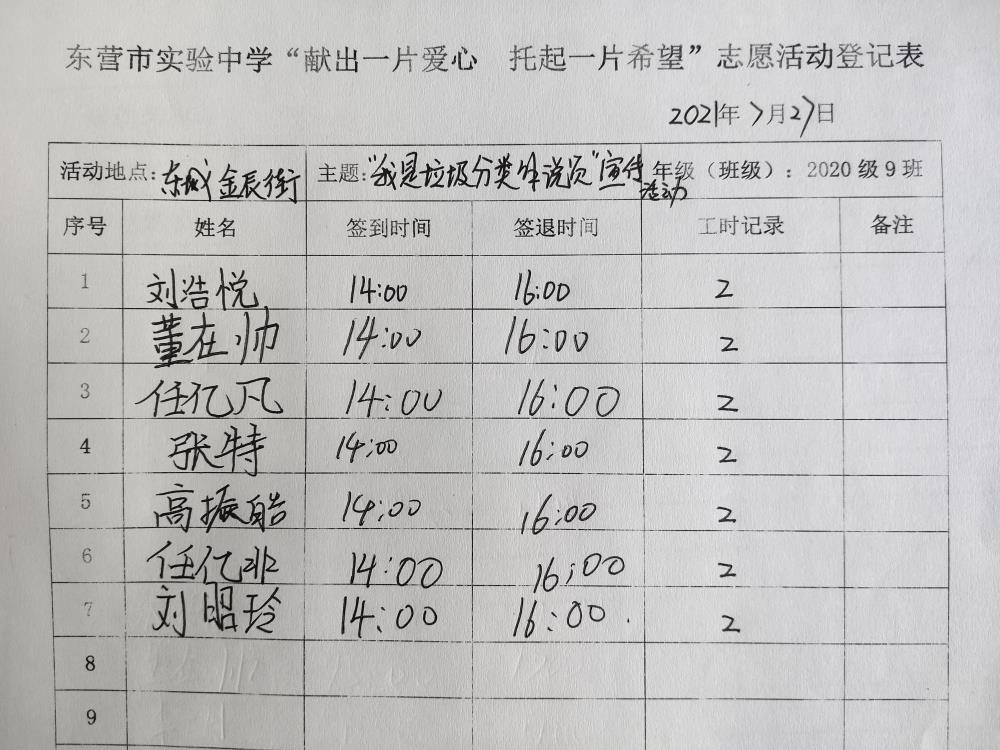 东营市实验中学“献出一片爱心 托起一片希望”志愿活动登记表
2021年7月27日
活动地点:东城金辰街 主题:“我是垃圾分类解说员”宣传活动 年级（班级）：2020级9班
序号 姓名 签到时间 签退时间 工时记录 备注
1 刘浩悦 14:00 16:00 2
2 董在帅 14:00 16:00 2
3 任亿凡 14:00 16:00 2
4 张特 14:00 16:00 2
5 高振皓 14:00 16:00 2
6 任亿非 14:00 16:00 2
7 刘昭玲 14:00 16:00 2
8
9